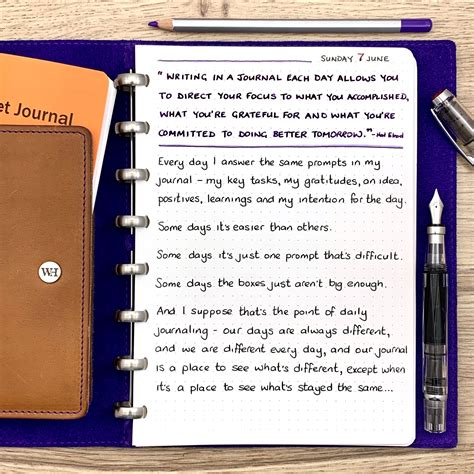 SUNDAY 7 JUNE
"WRITING IN A JOURNAL EACH DAY ALLOWS YOU
TO DIRECT YOUR FOCUS TO WHAT YOU ACCOMPLISHED,
WHAT YOU'RE GRATEFUL FOR AND WHAT YOU'RE
COMMITTED TO DOING BETTER TOMORROW."-Hal Elrod
Every day I answer the same prompts in my
journal - my key tasks, my gratitudes, an idea,
positives, learnings and my intention for the day.
Some days it's easier than others.
Some days it's just one prompt that's difficult.
Some days the boxes just aren't big enough.
And I suppose that's the point of daily
journaling - our days are always different,
and we are different every day, and our journal
is a place to see what's different, except when
it's a place to see what's stayed the same...
et Journal
WH